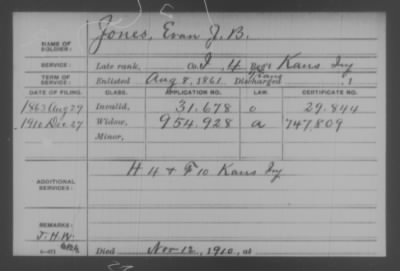 Jones, Evan J. B.
NAME OF SOLDIER:
SERVICE: Late rank, Co. I, 4 Reg't Kans Inf
TERM OF SERVICE: Enlisted Aug 8, 1861 Discharged , 1
DATE OF FILING. CLASS. APPLICATION NO. LAW. CERTIFICATE NO.
1863 Aug 29 Invalid, 31.678 c 29.844
1910 Dec 27 Widow, 954.928 a 747,809
Minor,
H 4 & F 10 Kans Inf
ADDITIONAL SERVICES:
REMARKS:
J.H.W.
Died Nov 12, 1910, at